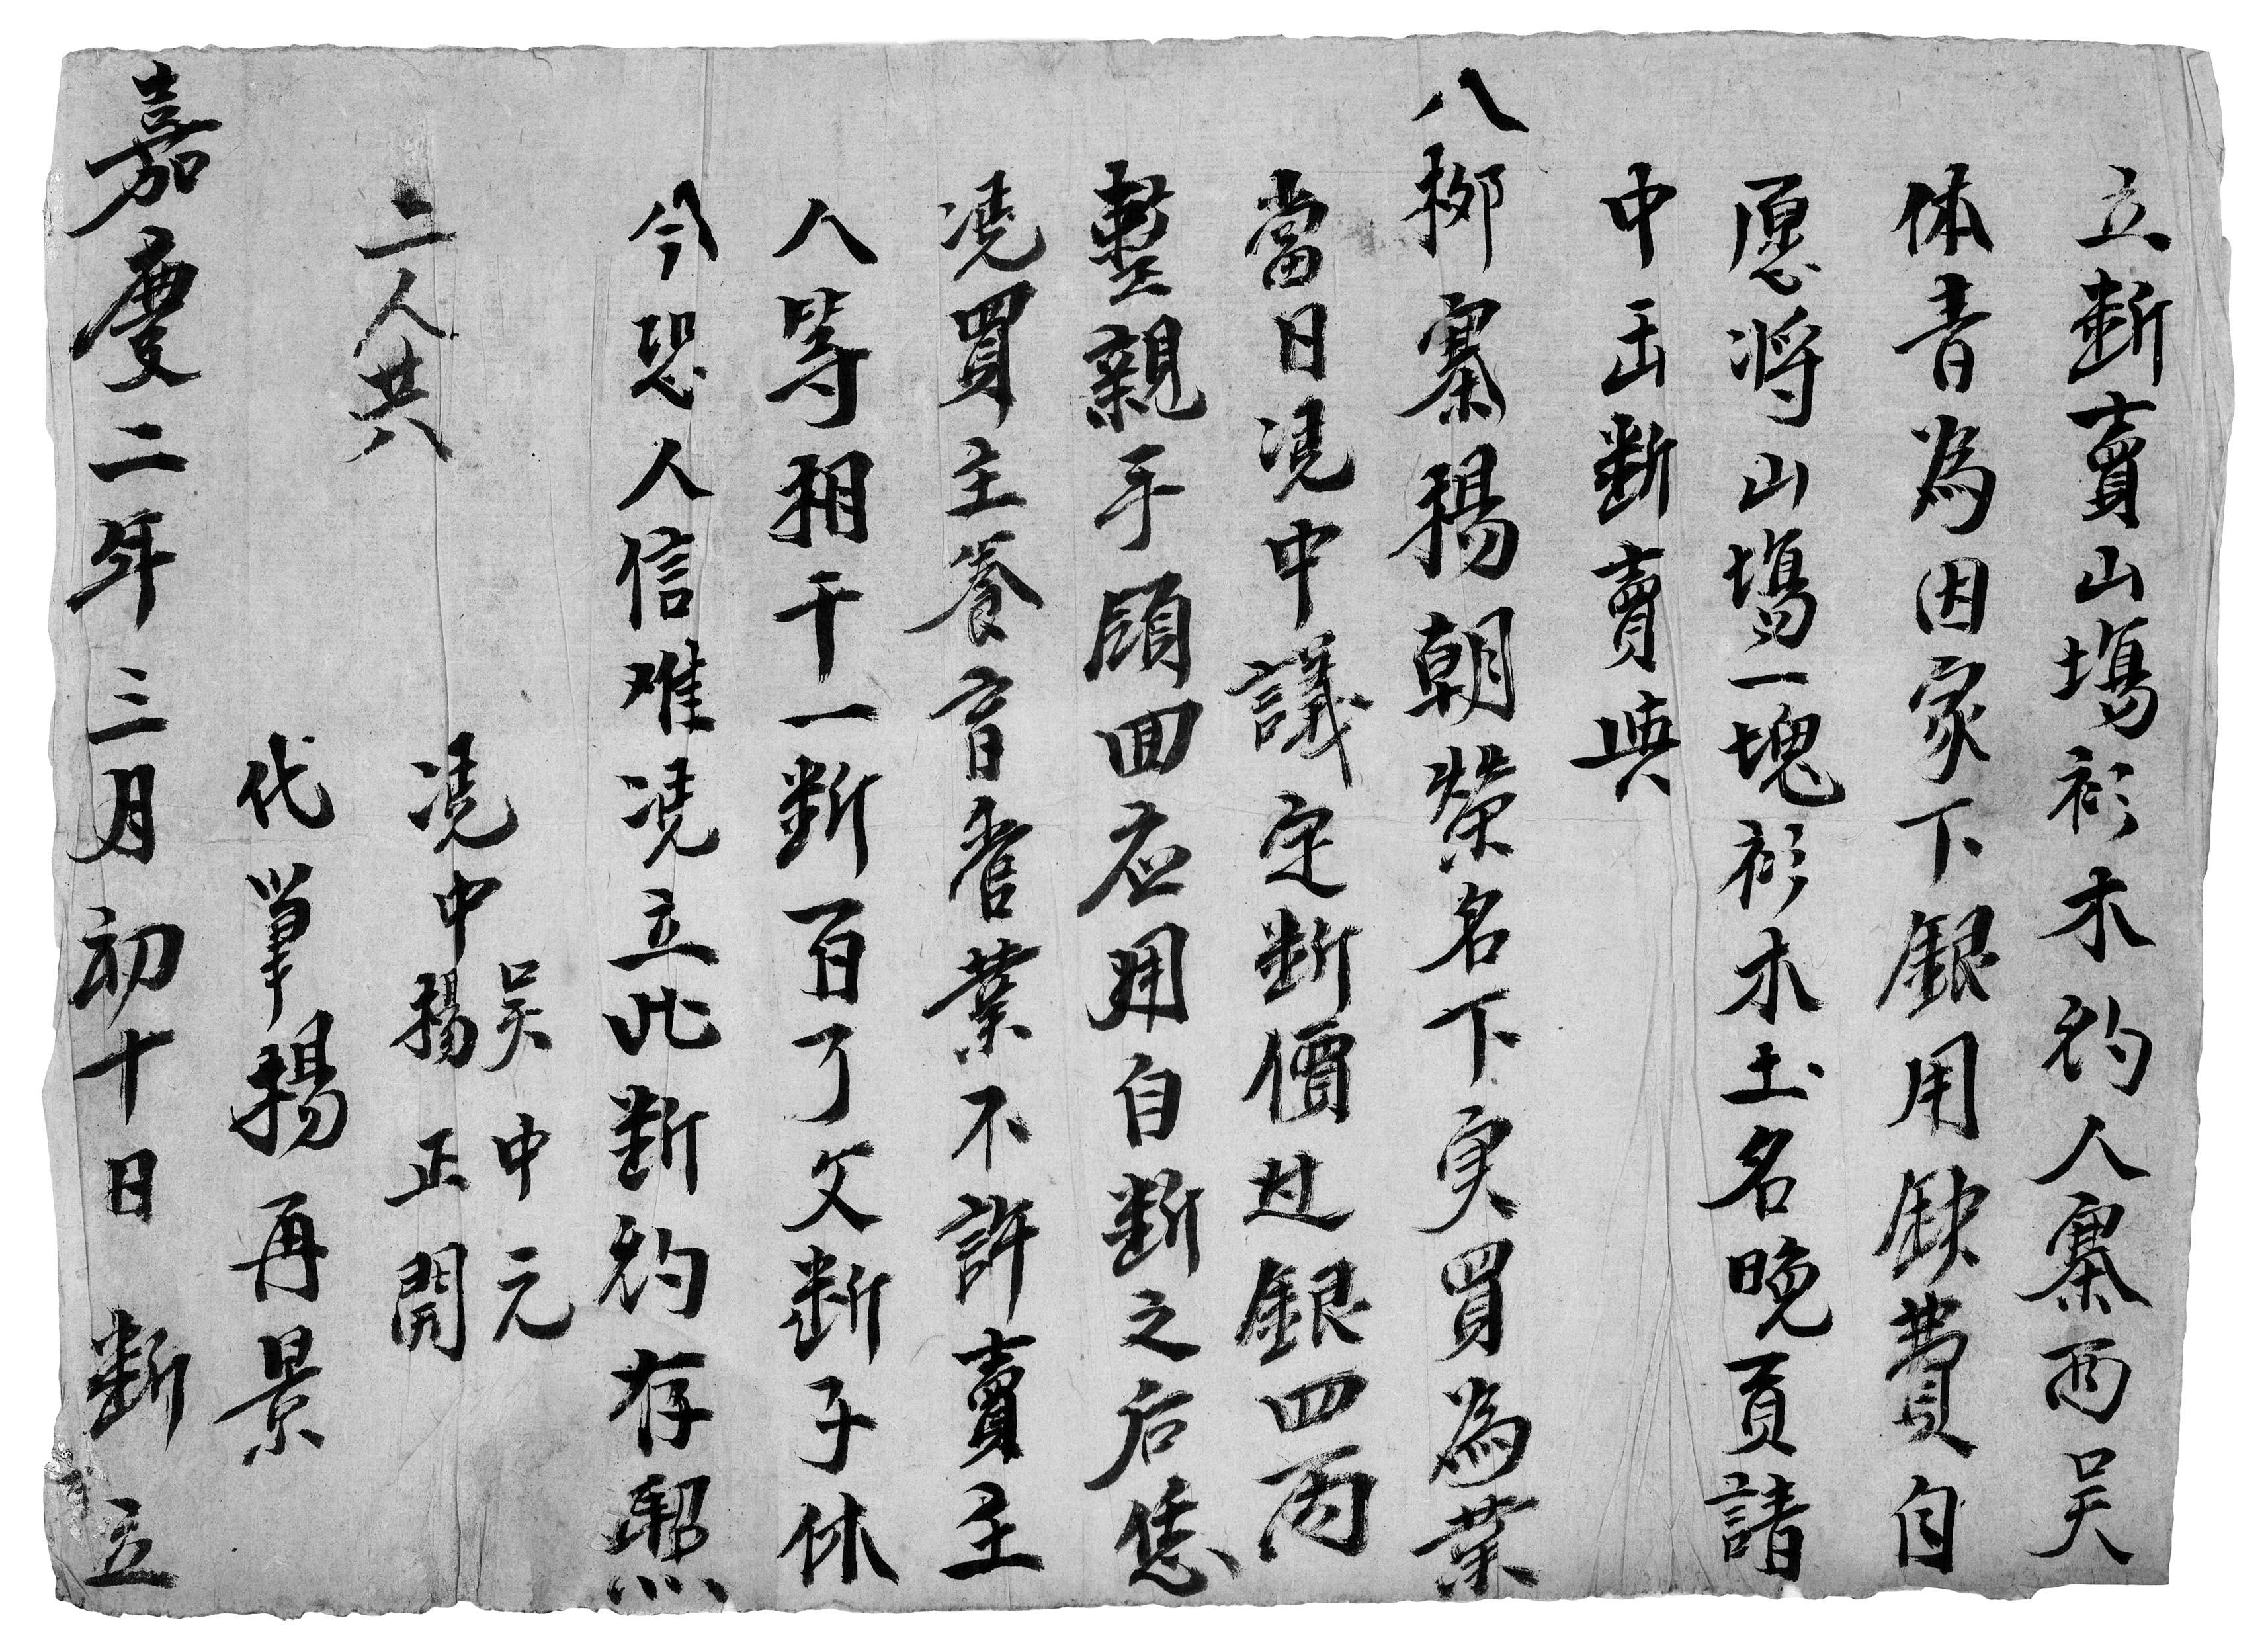 立断賣山塲衫木約人寨西吴
体音為因家下銀用缺費自
愿将山塲一塊衫木土名晚貢請
中出断賣與
八柳寨楊朝榮名下実買為業
當日凴中議定断價过銀四两
整親手領回应用自断之后恁
凴買主養育管業不許賣主
人等相干一断百了父断子休
今恐人信难凴立此断約存照
二人共
凴中 吴中元
楊正開
代筆楊再景
嘉慶二年三月初十日 断 立